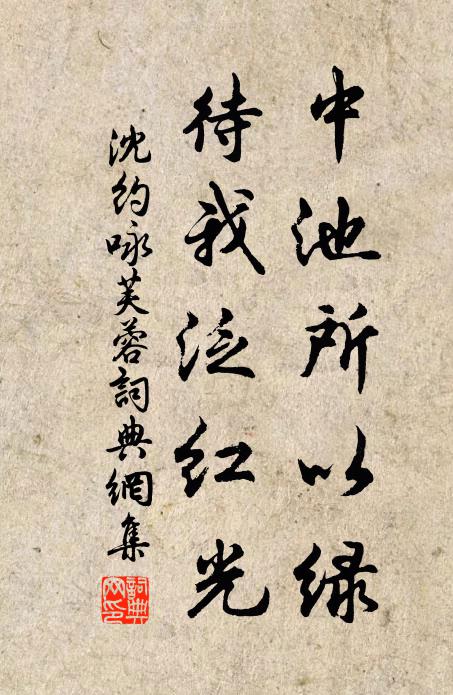 中池所以绿
待我泛红光
沈约咏芙蓉詞典網集
詞典网印